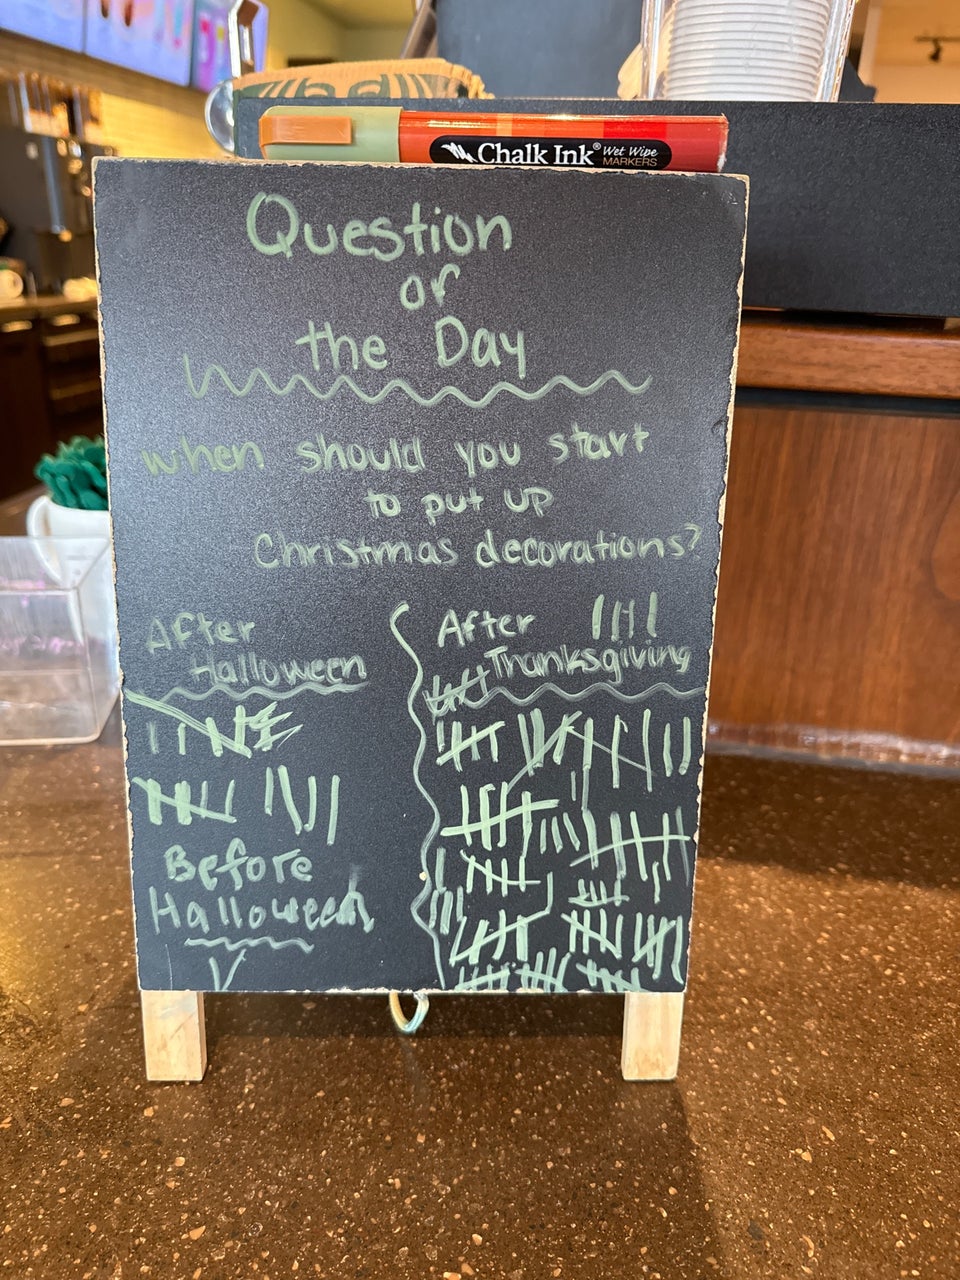 Chalk Ink® Wet Wipe
MARKERS
Question
of
the Day
when should you start
to put up
Christmas decorations?
After
Halloween
After
Thanksgiving
Before
Halloween